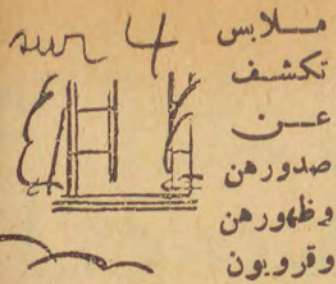 sur 4
ملابس
تكشف
عن
صدورهن
وظهورهن
وقرويون